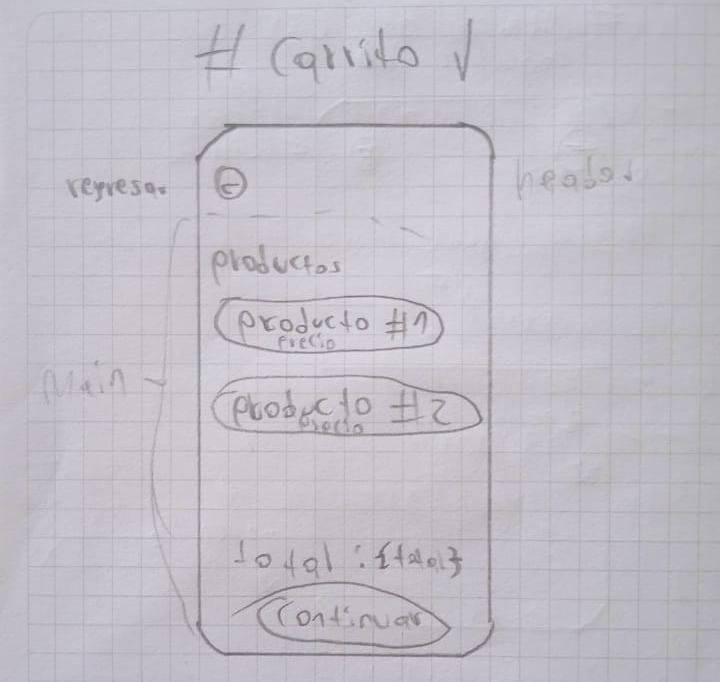 # Carrito √
regresar
header
productos
producto #1
precio
Main
producto #2
precio
total : {total}
Continuar